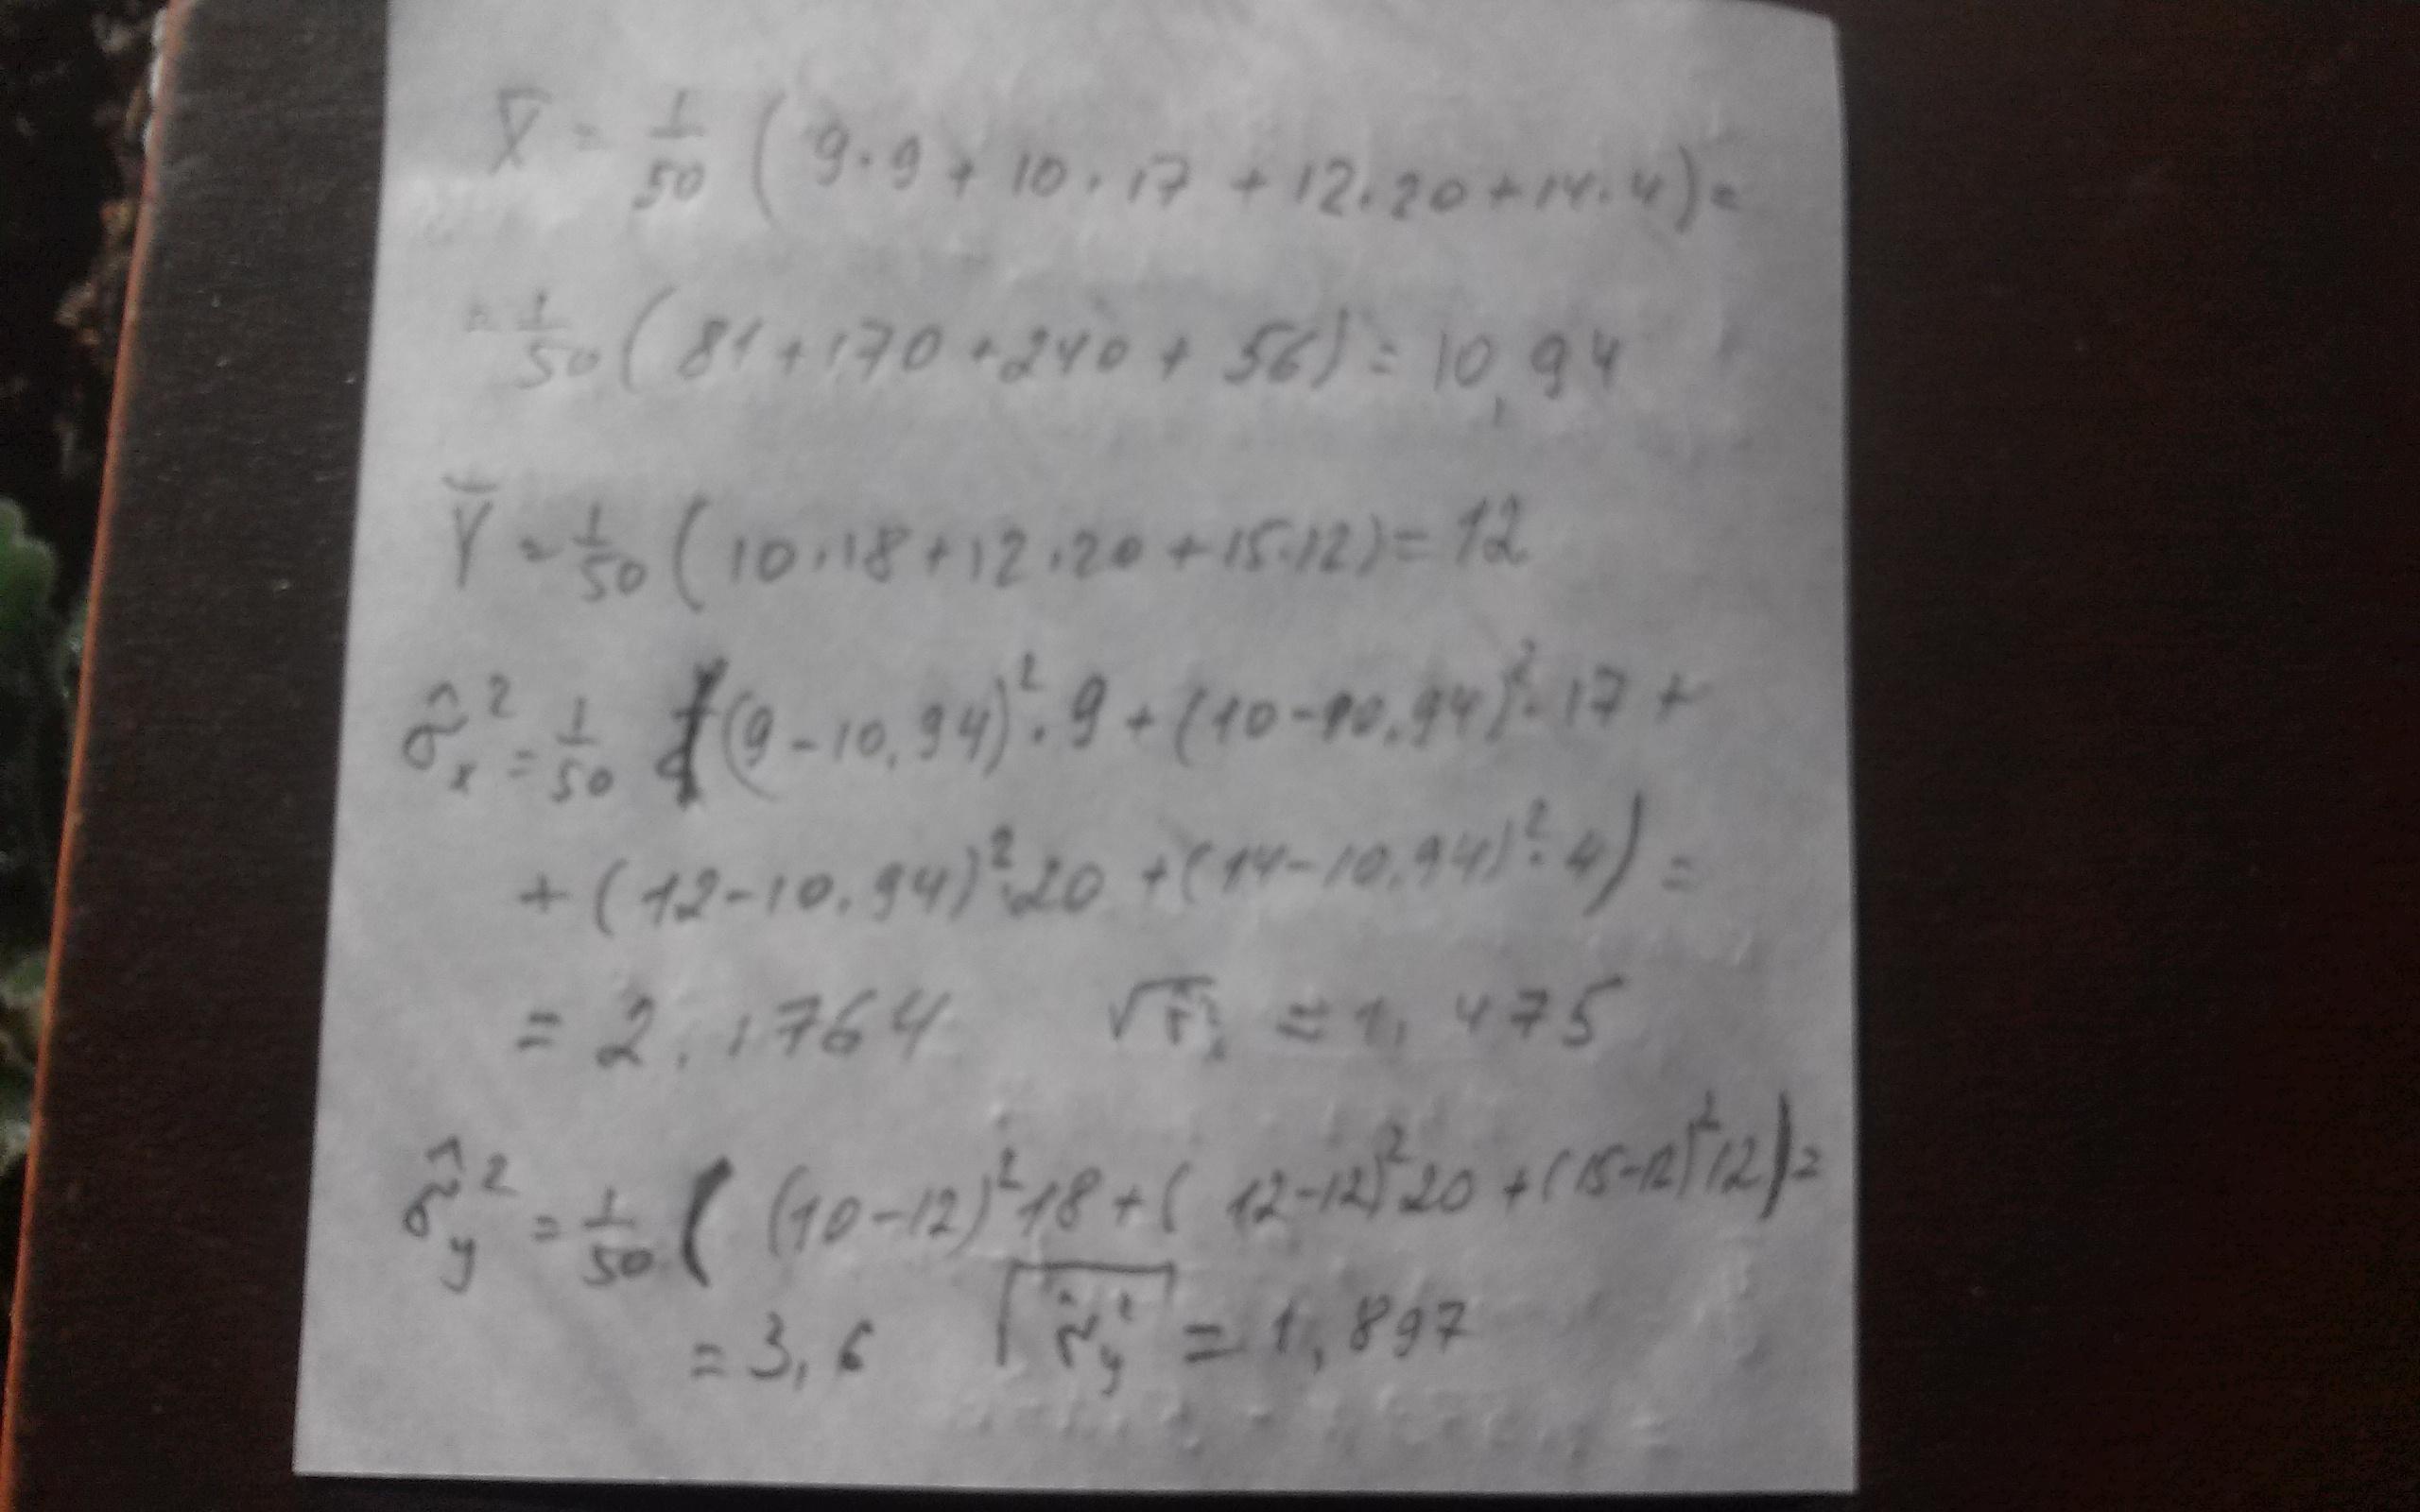 X̅ = 1/50 ( 9·9 + 10·17 + 12·20 + 14·4) =
= 1/50 ( 81 + 170 + 240 + 56) = 10,94
Y̅ = 1/50 ( 10·18 + 12·20 + 15·12) = 12
σ̂²ₓ = 1/50 ((9 - 10,94)²·9 + (10 - 10,94)²·17 +
+ (12 - 10,94)²·20 + (14 - 10,94)²·4) =
= 2,1764 = 1,475
σ̂²y = 1/50 ( (10 - 12)² 18 + ( 12 - 12)² 20 + (15 - 12)² 12) =
= 3,6 √σ̂²y = 1,897